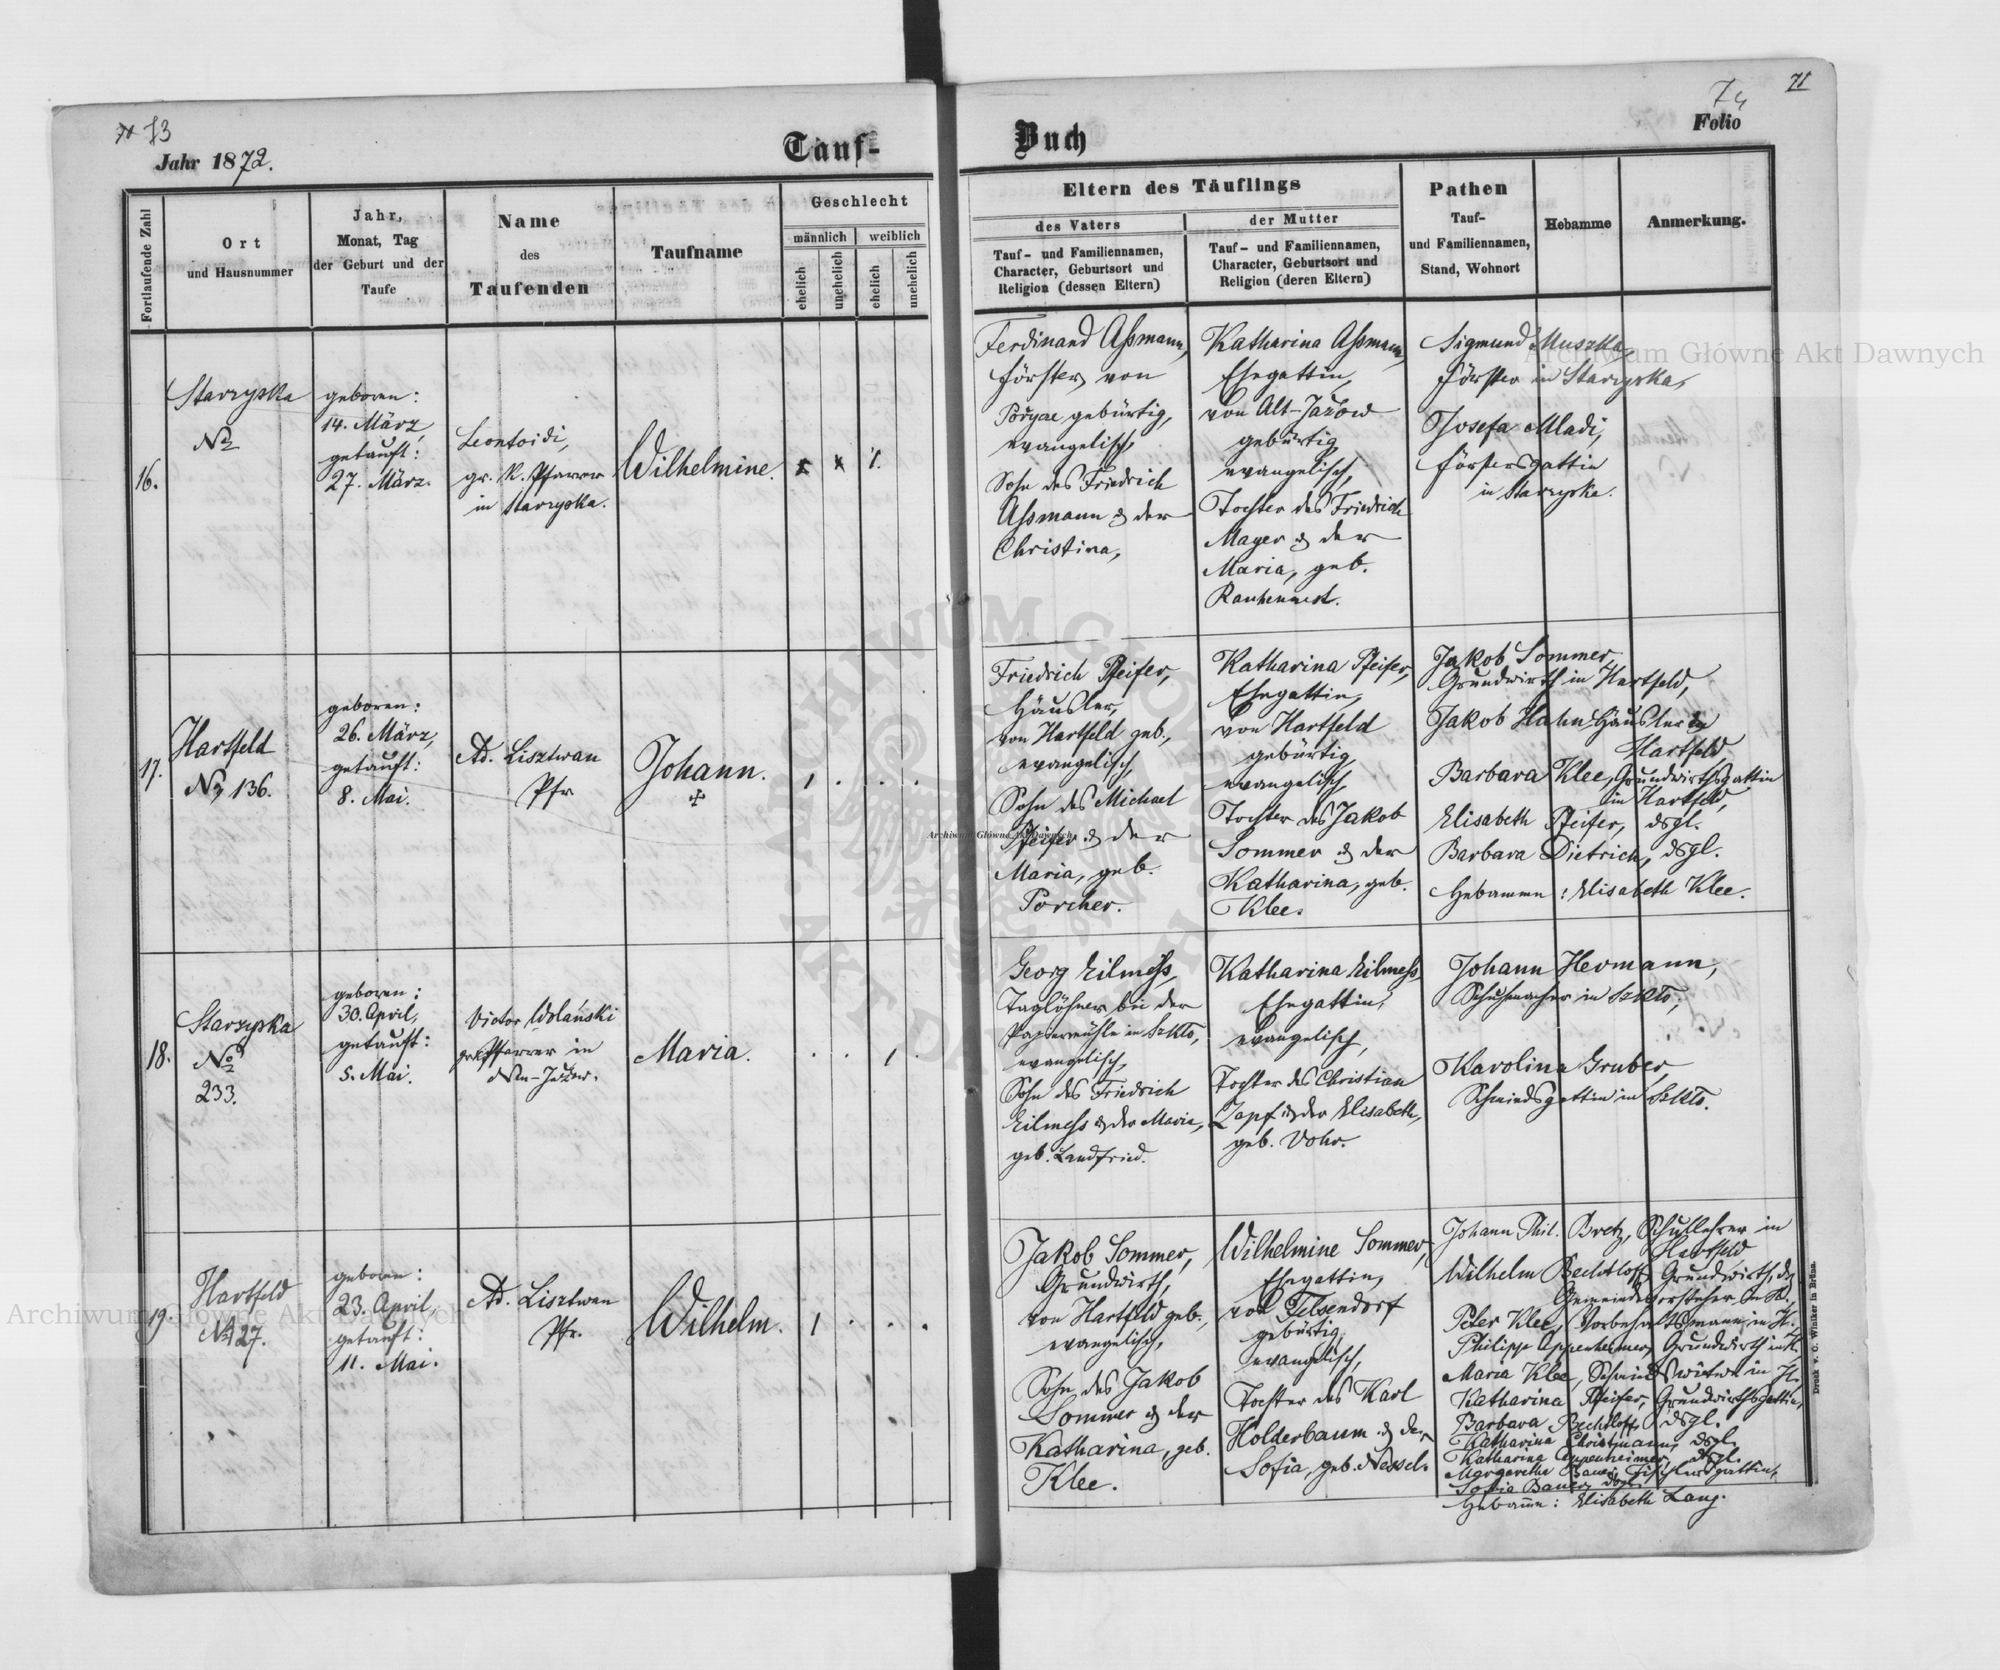 73
Jahr 1872.
Tauf-
Buch
71
74
Folio
Fortlaufende Zahl
Ort
und Hausnummer
Jahr,
Monat, Tag
der Geburt und der
Taufe
Name
des
Taufenden
Taufname
Geschlecht
männlich
weiblich
ehelich
unehelich
ehelich
unehelich
Eltern des Täuflings
des Vaters
Tauf- und Familiennamen,
Character, Geburtsort und
Religion (dessen Eltern)
der Mutter
Tauf- und Familiennamen,
Character, Geburtsort und
Religion (deren Eltern)
Pathen
Tauf-
und Familiennamen,
Stand, Wohnort
Hebamme
Anmerkung.
16.
Starzyska
No
geboren:
14. März,
getauft:
27. März.
Leontoidi,
gr. k. Pfarrer
in Starzyska.
Wilhelmine.
Ferdinand Aßmann,
Förster, von
gebürtig,
evangelisch,
Sohn des Friedrich
Aßmann & der
Christina,
Katharina Aßmann,
Ehegattin,
von Alt-Jażow
gebürtig,
evangelisch,
Tochter des Friedrich
Mayer & der
Maria, geb.
Sigmund Muszka,
Förster in Starzyska,
Josefa Mladi,
Förstersgattin
in Starzyska.
17.
Hartfeld
No 136.
geboren:
26. März,
getauft:
8. Mai.
Ad. Lisztwan
Pfr
Johann.
+
1 . . .
Friedrich Pfeifer,
Häusler,
von Hartfeld geb.,
evangelisch,
Sohn des Michael
Pfeifer & der
Maria, geb.
Porcher.
Katharina Pfeifer,
Ehegattin,
von Hartfeld
gebürtig,
evangelisch,
Tochter des Jakob
Sommer & der
Katharina, geb.
Klee.
Jakob Sommer,
Grundwirth in Hartfeld,
Jakob Hahn Häusler in
Hartfeld
Barbara Klee, Grundwirthsgattin
in Hartfeld,
Elisabeth Pfeifer, dsgl.
Barbara Dietrich, dsgl.
Hebamme: Elisabeth Klee.
18.
Starzyska
No
233.
geboren:
30. April,
getauft:
5. Mai.
Victor Wolański
Pfarrer in
Maria.
. . 1 .
Georg Eilmeß,
Taglöhner bei der
Papiermühle in Szkto,
evangelisch,
Sohn des Friedrich
Eilmeß & der Maria,
geb. Landfried.
Katharina Eilmeß,
Ehegattin,
evangelisch,
Tochter des Christian
Zapf & der Elisabeth,
geb. Vohr.
Johann Hermann,
Schuhmacher in Szkto,
Karolina Gruber,
Schmiedsgattin in Szkto.
19.
Hartfeld
No 27.
geboren:
23. April,
getauft:
11. Mai.
Ad. Lisztwan
Pfr.
Wilhelm.
1 . . .
Jakob Sommer,
Grundwirth,
von Hartfeld geb.,
evangelisch,
Sohn des Jakob
Sommer & der
Katharina, geb.
Klee.
Wilhelmine Sommer,
Ehegattin,
von Felsendorf
gebürtig,
evangelisch,
Tochter des Karl
Holderbaum & der
Sofia, geb. Nessel.
Johann Phil. Bretz, Schullehrer in
Hartfeld
Wilhelm Bechtloff, Grundwirth,
Gemeindevorsteher in H.
Peter Klee, Vorbehaltsmann in H.
Philipp Oppenheimer, Grundwirth in H.
Maria Klee, Schmiedswitwe in H.
Katharina Pfeifer, Grundwirthsgattin,
Barbara Bechtloff, dsgl.
Katharina Christmann, dsgl.
Katharina Oppenheimer, dsgl.
Margaretha Bauer, Tischlersgattin,
Sofia Bauer, dsgl.
Hebamme: Elisabeth Lang.
Druck v. C. Winiker in Brünn.
Archiwum Główne Akt Dawnych
Archiwum Główne Akt Dawnych
Archiwum Główne Akt Dawnych